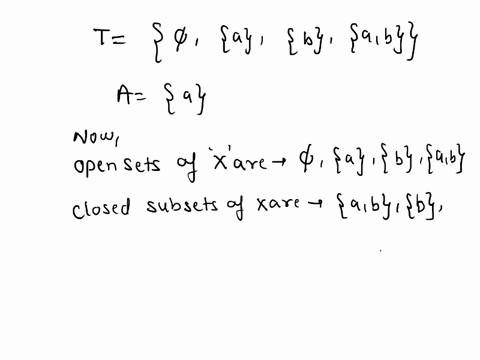 T= {φ, {a}, {b}, {a,b}}
A= {a}
Now,
open sets of 'x' are → φ, {a}, {b}, {a,b}
closed subsets of x are → {a,b}, {b},